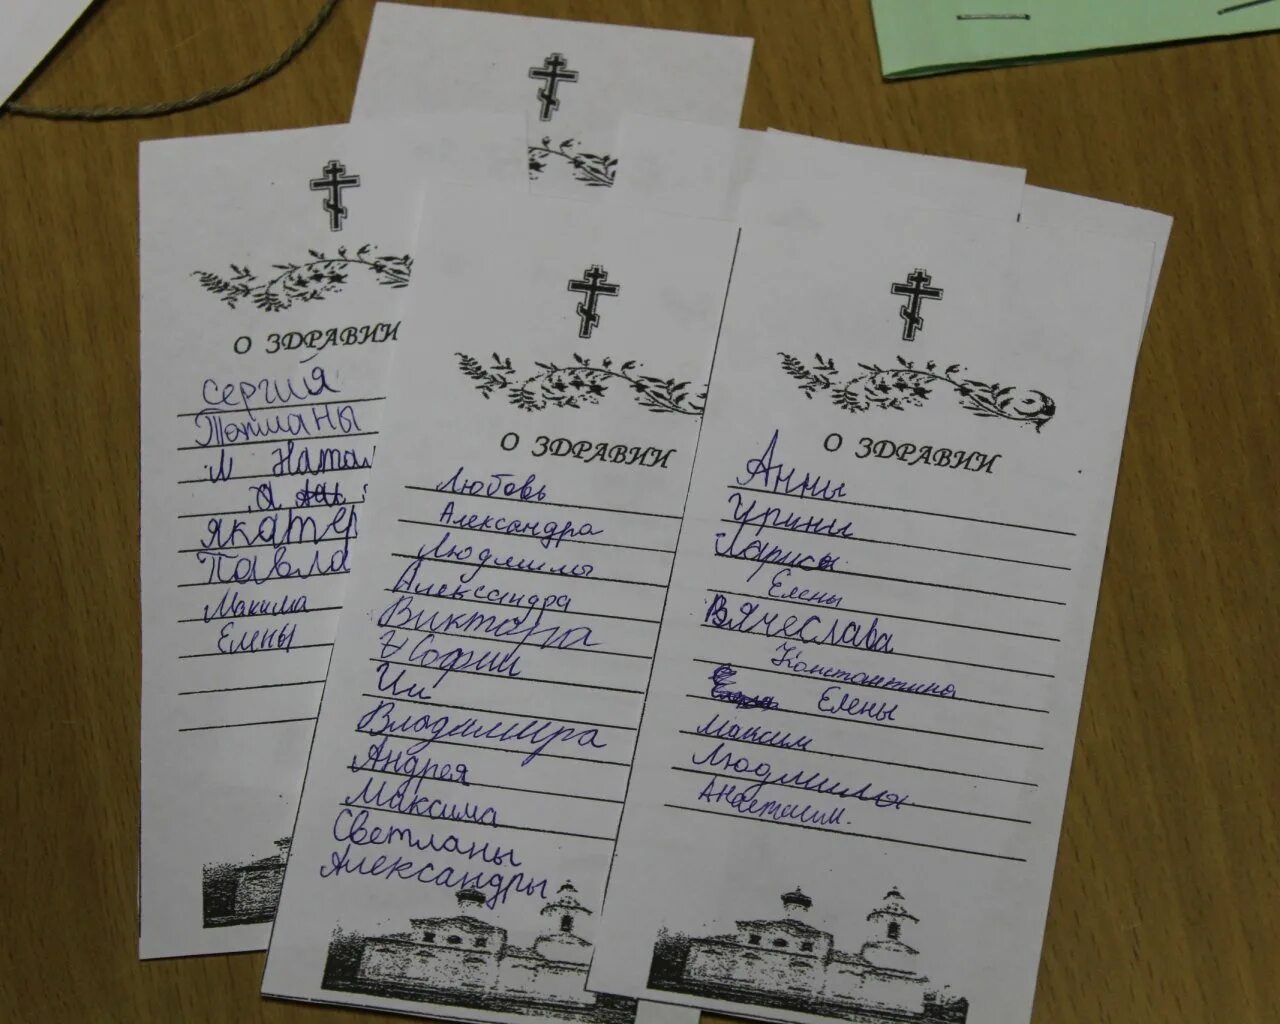 О ЗДРАВИИ
Сергия
Татианы
Мл Натал
Павла
Макима
Елены
О ЗДРАВИИ
Любовь
Александра
Людмилы
Александра
Виктора
Софии
Ии
Владимира
Андрея
Максима
Светланы
Александры
О ЗДРАВИИ
Анны
Ирины
Ларисы
Елены
Вячеслава
Константина
Елены
Максим
Людмилы
Анастасии.